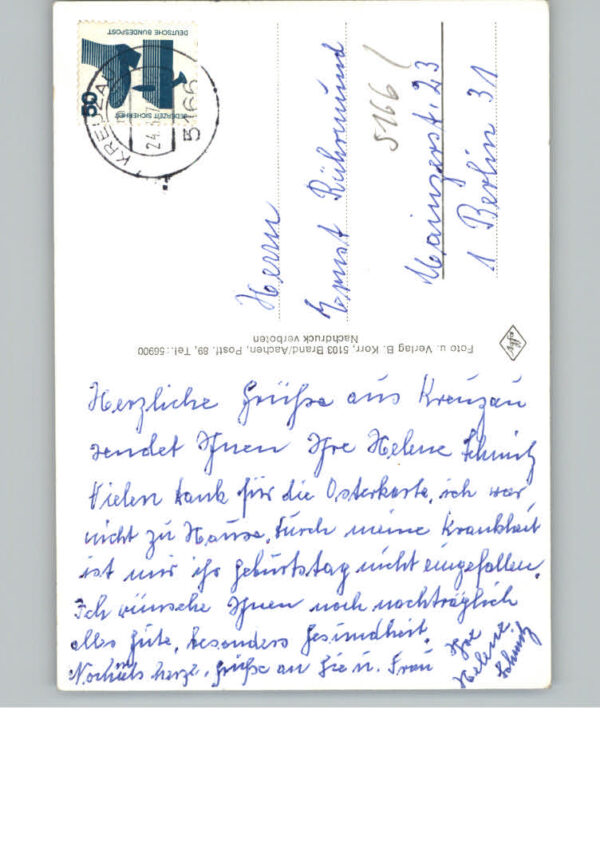 DEUTSCHE BUNDESPOST
50
JEDERZEIT SICHERHEIT
KREUZAU
24.5.7
5166
5166 /
Herrn
Ernst Rührmund
Mainzerstr. 23
1 Berlin 31
Foto u. Verlag B. Korr, 5103 Brand/Aachen, Postf. 89, Tel.: 56900
Nachdruck verboten
Herzliche Grüße aus Kreuzau
sendet Ihnen Ihre Helene Schmitz
Vielen Dank für die Osterkarte, ich war
nicht zu Hause. Durch meine Krankheit
ist mir ihr Geburtstag nicht eingefallen.
Ich wünsche Ihnen noch nachträglich
alles Gute, besonders Gesundheit.
herzl. Grüße an Sie u. Frau
Ihre
Helene
Schmitz